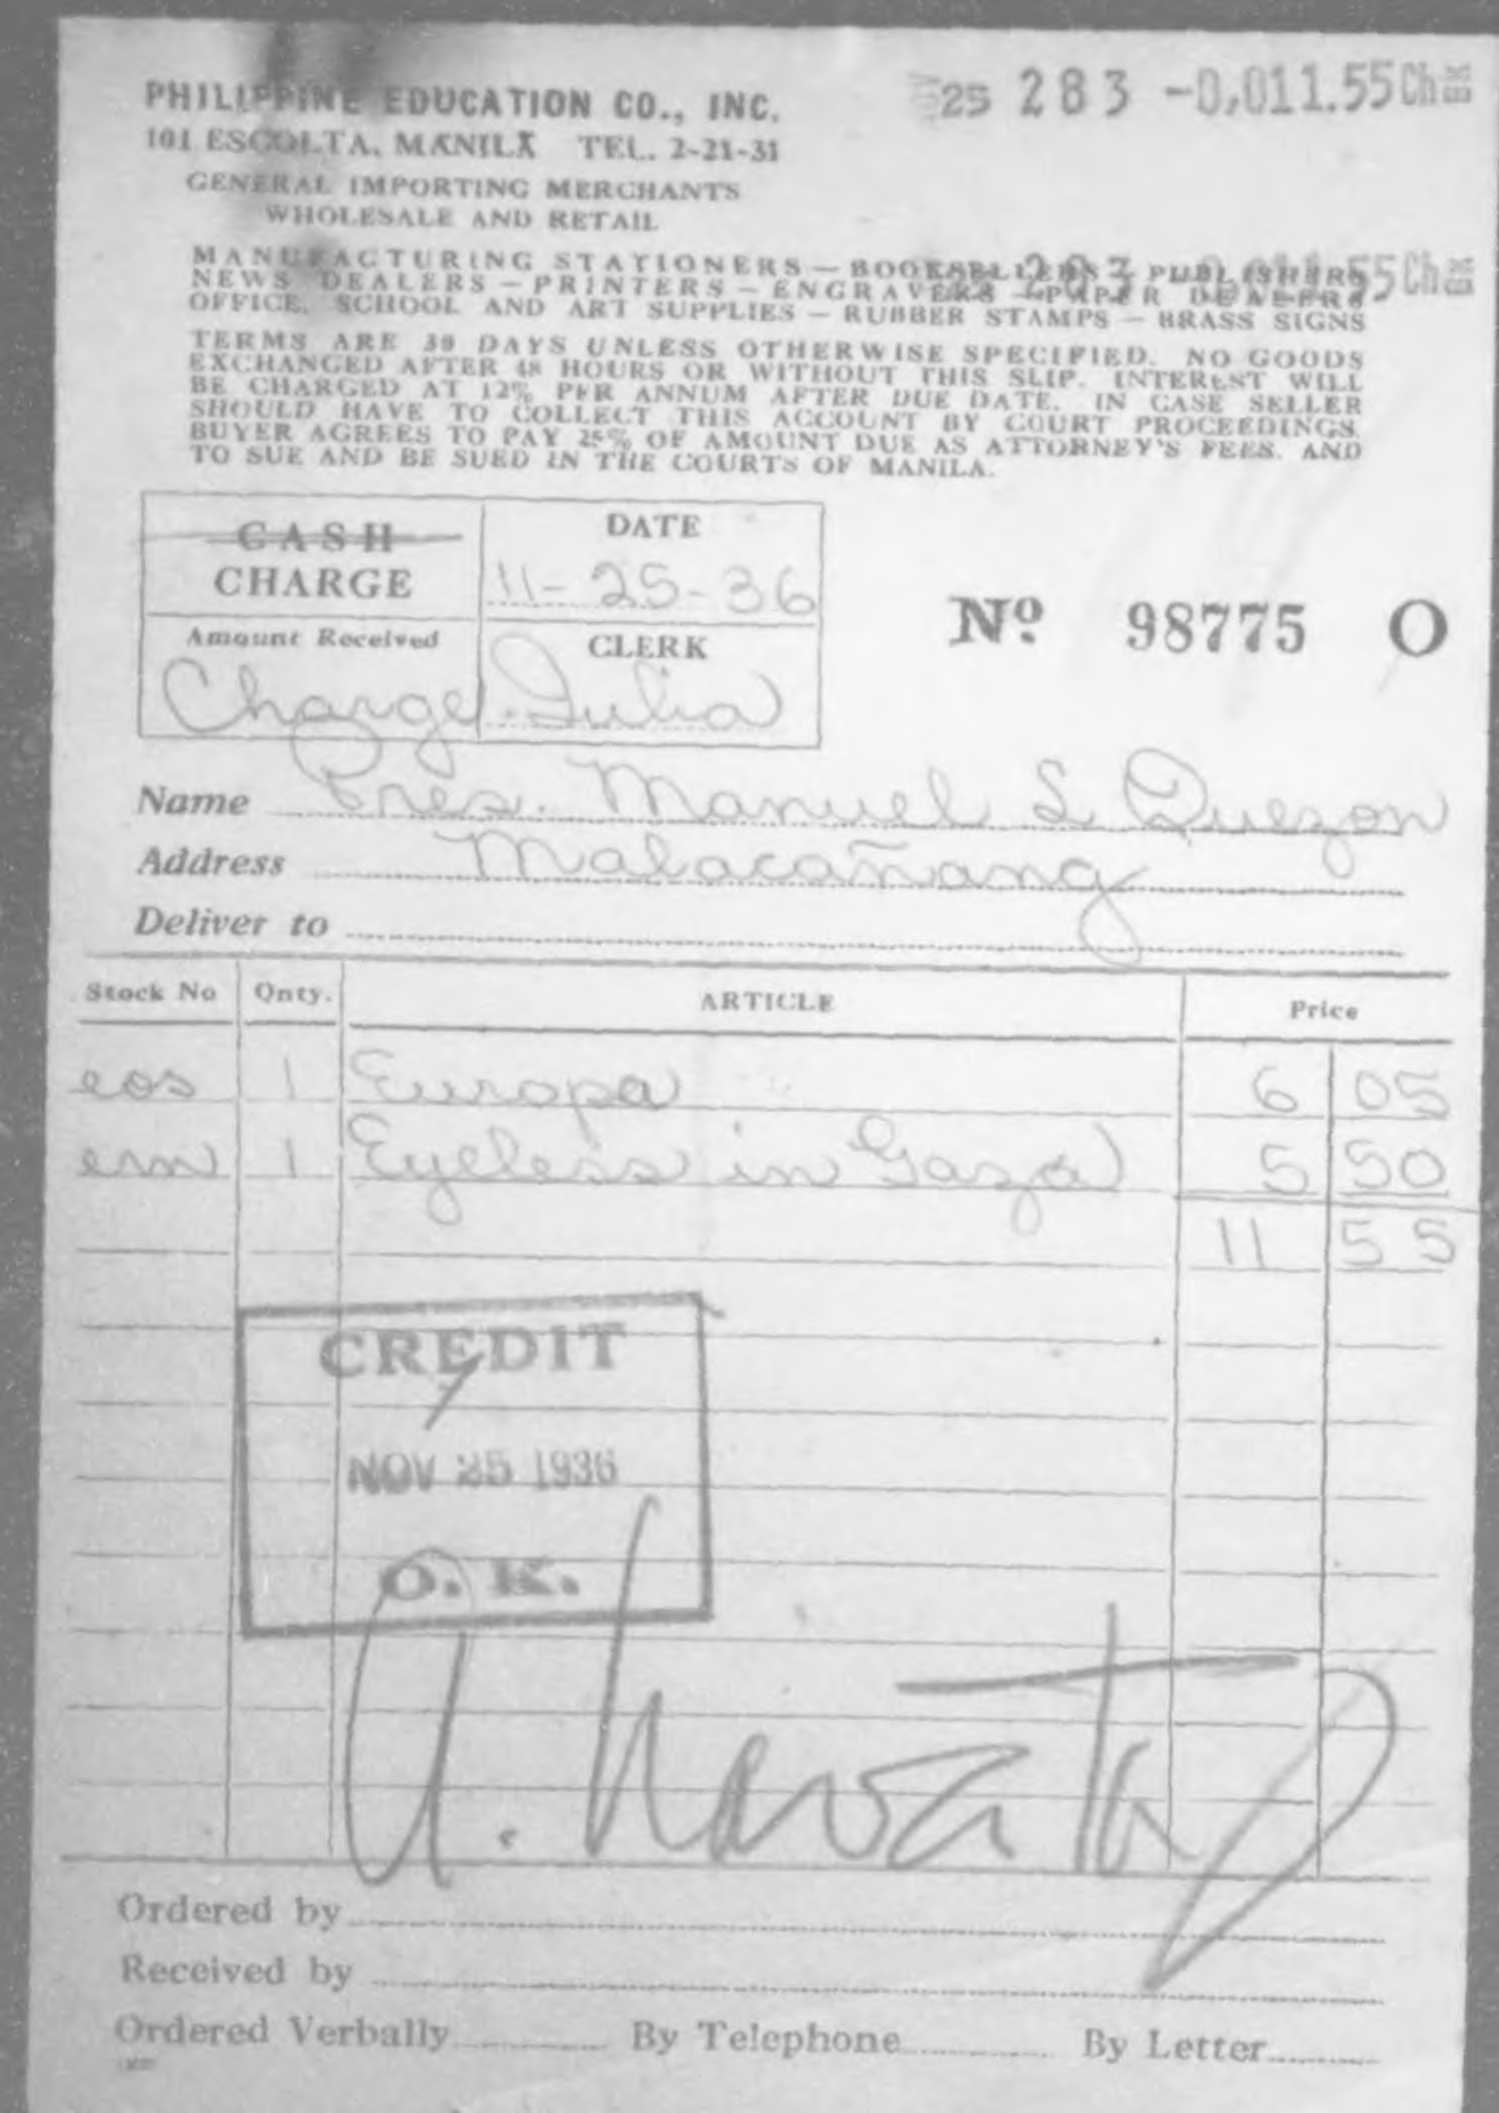 PHILIPPINE EDUCATION CO., INC.
25 283 -0,011.55Ch
101 ESCOLTA, MANILA TEL. 2-21-31
GENERAL IMPORTING MERCHANTS
WHOLESALE AND RETAIL
MANUFACTURING STATIONERS — BOOKSELLERS — PUBLISHERS
NEWS DEALERS — PRINTERS — ENGRAVERS — PAPER DEALERS
OFFICE, SCHOOL AND ART SUPPLIES — RUBBER STAMPS — BRASS SIGNS
TERMS ARE 30 DAYS UNLESS OTHERWISE SPECIFIED. NO GOODS
EXCHANGED AFTER 48 HOURS OR WITHOUT THIS SLIP. INTEREST WILL
BE CHARGED AT 12% PER ANNUM AFTER DUE DATE. IN CASE SELLER
SHOULD HAVE TO COLLECT THIS ACCOUNT BY COURT PROCEEDINGS,
BUYER AGREES TO PAY 25% OF AMOUNT DUE AS ATTORNEY'S FEES, AND
TO SUE AND BE SUED IN THE COURTS OF MANILA.
CASH
CHARGE
DATE
11-25-36
Amount Received
Charge
CLERK
Julia
Nº 98775 O
Name Pres. Manuel L Quezon
Address Malacañang
Deliver to
Stock No Qnty. ARTICLE Price
eos 1 Europa 6 05
em 1 Eyeless in Gaza 5 50
11 55
CREDIT
NOV 25 1936
O. K.
Ordered by
Received by
Ordered Verbally By Telephone By Letter